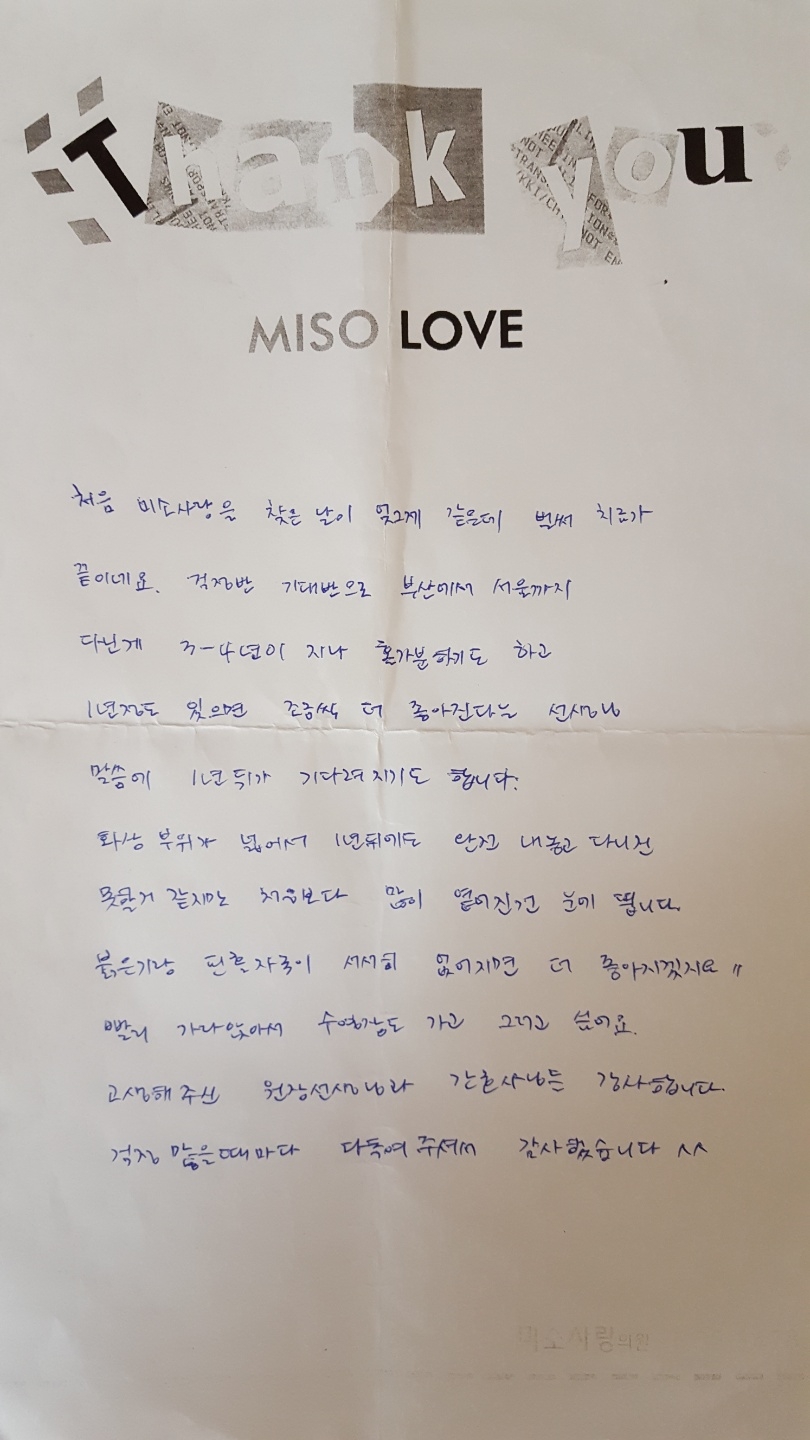 Thank you
MISO LOVE
처음 미소사랑을 찾은 날이 엊그제 같은데 벌써 치료가
끝이네요. 걱정반 기대반으로 부산에서 서울까지
다닌게 3-4년이 지나 홀가분하기도 하고
1년정도 있으면 조금씩 더 좋아진다는 선생님
말씀에 1년 뒤가 기다려지기도 합니다.
화상 부위가 넓어서 1년뒤에도 완전 내놓고 다니건
못할거 같지만 처음보다 많이 옅어진건 눈에 띕니다.
붉은기랑 핀홀자국이 서서히 없어지면 더 좋아지겠지요
빨리 가라앉아서 수영장도 가고 그러고 싶어요.
고생해주신 원장선생님과 간호사님들 감사합니다.
걱정 많을때마다 다독여 주셔서 감사했습니다 ^^
미소사랑의원